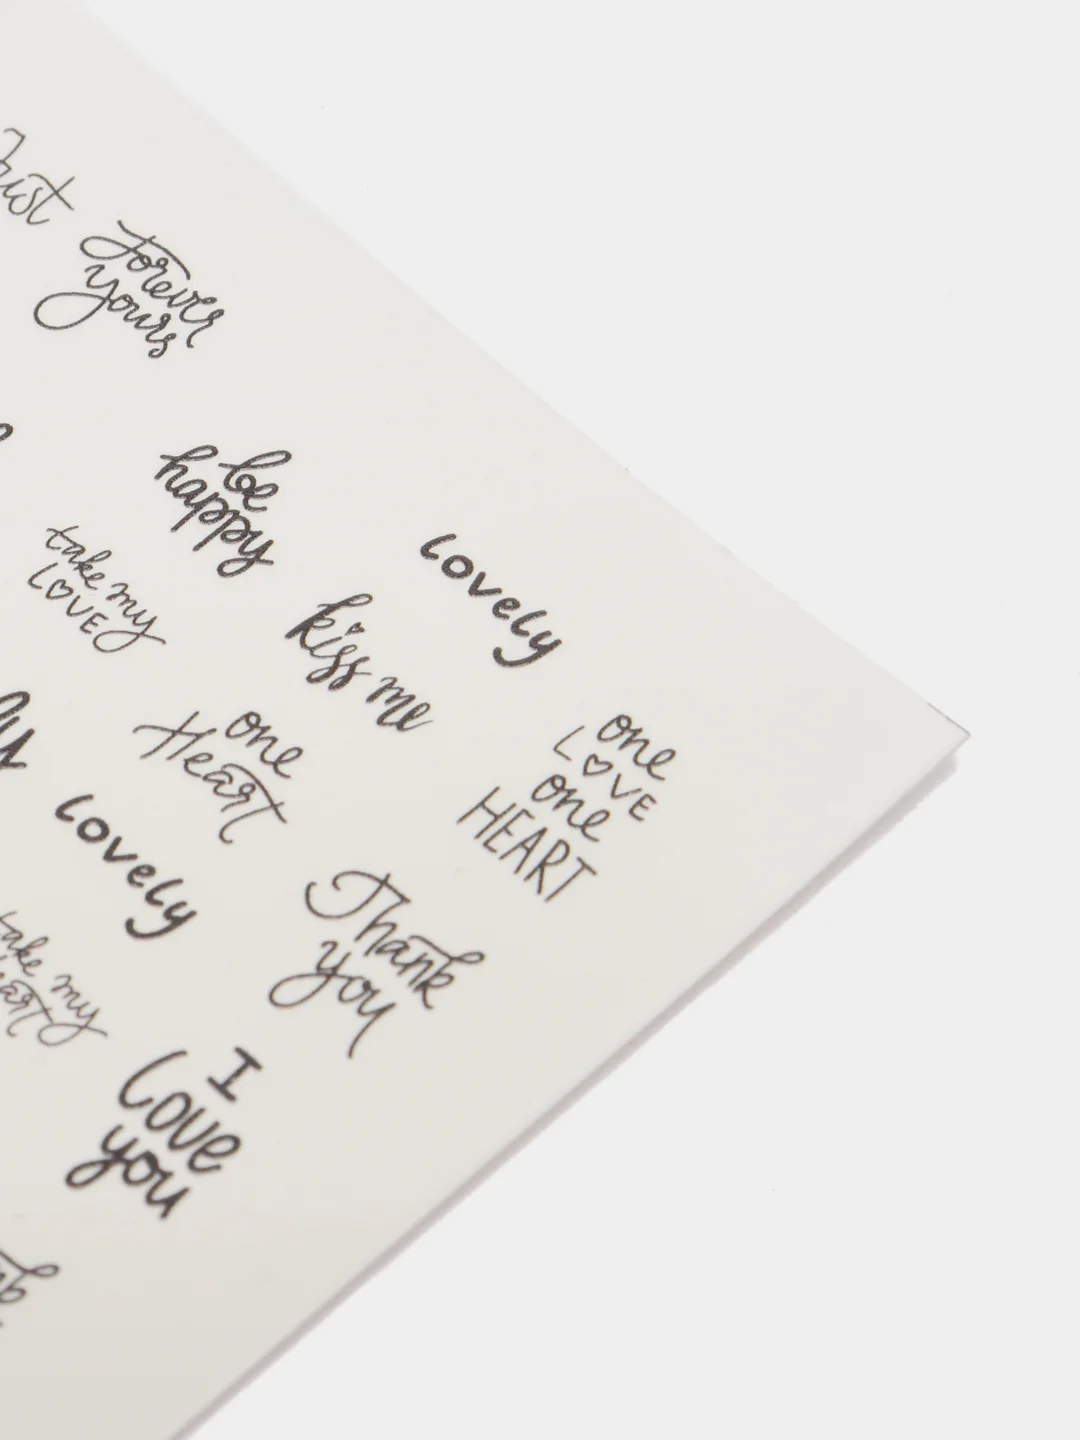 Forever
yours
be
happy
take my
LOVE
lovely
kiss me
one
Heart
one
LOVE
one
HEART
lovely
Thank
you
take my
I
Love
you